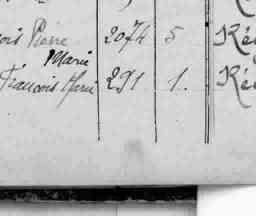 ois Pierre 2074 5 Ré
Marie
François Marie 291 1. Ré